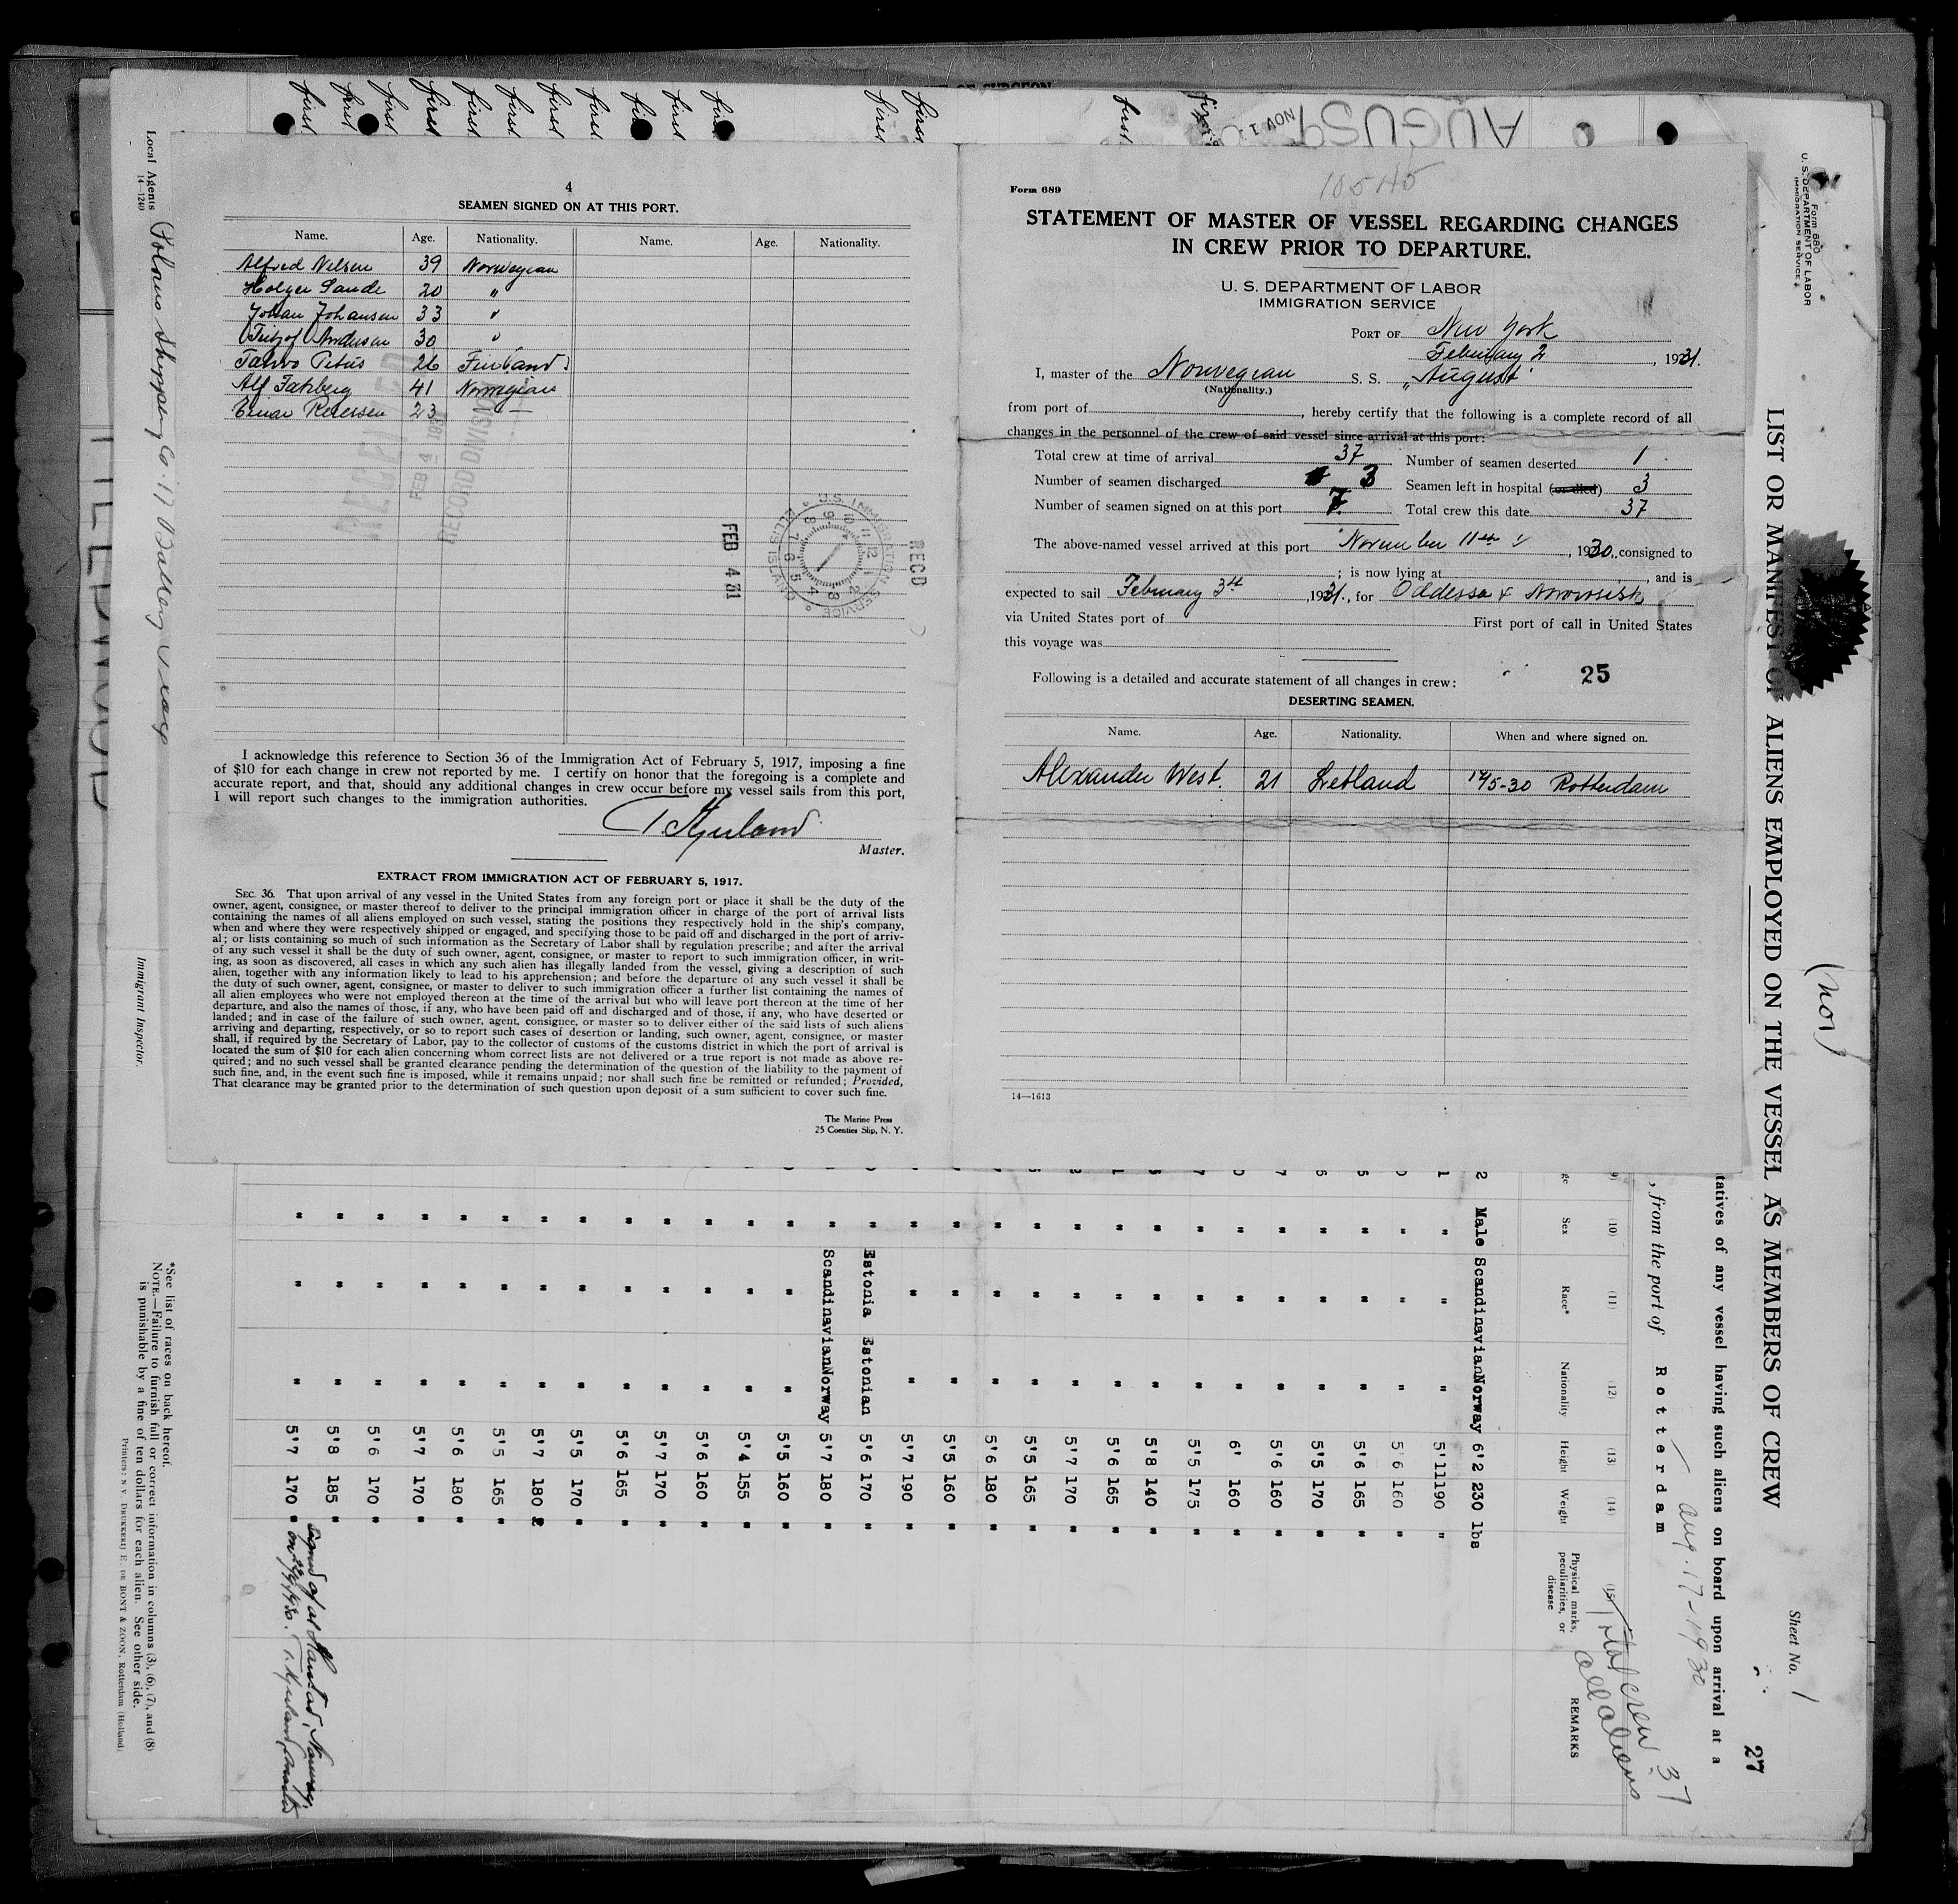 4
SEAMEN SIGNED ON AT THIS PORT.
Name. Age. Nationality. Name. Age. Nationality.
Alfred Nilsen 39 Norwegian
Holger Sande 20 "
Johan Johansen 33 "
Fritjof Andersen 30 "
26
Alf 41 Norwegian
Einar 23 — " —
RECORD DIVISION
FEB 4 1931
FEB 4 31
RECD
U.S. IMMIGRATION SERVICE
ELLIS ISLAND
I acknowledge this reference to Section 36 of the Immigration Act of February 5, 1917, imposing a fine
of $10 for each change in crew not reported by me. I certify on honor that the foregoing is a complete and
accurate report, and that, should any additional changes in crew occur before my vessel sails from this port,
I will report such changes to the immigration authorities.
Master.
EXTRACT FROM IMMIGRATION ACT OF FEBRUARY 5, 1917.
SEC. 36. That upon arrival of any vessel in the United States from any foreign port or place it shall be the duty of the
owner, agent, consignee, or master thereof to deliver to the principal immigration officer in charge of the port of arrival lists
containing the names of all aliens employed on such vessel, stating the positions they respectively hold in the ship's company,
when and where they were respectively shipped or engaged, and specifying those to be paid off and discharged in the port of arriv-
al; or lists containing so much of such information as the Secretary of Labor shall by regulation prescribe; and after the arrival
of any such vessel it shall be the duty of such owner, agent, consignee, or master to report to such immigration officer, in writ-
ing, as soon as discovered, all cases in which any such alien has illegally landed from the vessel, giving a description of such
alien, together with any information likely to lead to his apprehension; and before the departure of any such vessel it shall be
the duty of such owner, agent, consignee, or master to deliver to such immigration officer a further list containing the names of
all alien employees who were not employed thereon at the time of the arrival but who will leave port thereon at the time of her
departure, and also the names of those, if any, who have been paid off and discharged and of those, if any, who have deserted or
landed; and in case of the failure of such owner, agent, consignee, or master so to deliver either of the said lists of such aliens
arriving and departing, respectively, or so to report such cases of desertion or landing, such owner, agent, consignee, or master
shall, if required by the Secretary of Labor, pay to the collector of customs of the customs district in which the port of arrival is
located the sum of $10 for each alien concerning whom correct lists are not delivered or a true report is not made as above re-
quired; and no such vessel shall be granted clearance pending the determination of the question of the liability to the payment of
such fine, and, in the event such fine is imposed, while it remains unpaid; nor shall such fine be remitted or refunded; Provided,
That clearance may be granted prior to the determination of such question upon deposit of a sum sufficient to cover such fine.
The Marine Press
25 Coenties Slip, N. Y.
Form 689
STATEMENT OF MASTER OF VESSEL REGARDING CHANGES
IN CREW PRIOR TO DEPARTURE.
U. S. DEPARTMENT OF LABOR
IMMIGRATION SERVICE
PORT OF New York
February 2, 1931.
I, master of the Norwegian S. S. "August"
(Nationality.)
from port of, hereby certify that the following is a complete record of all
changes in the personnel of the crew of said vessel since arrival at this port:
Total crew at time of arrival 37 Number of seamen deserted 1
Number of seamen discharged 3 Seamen left in hospital (or died) 3
Number of seamen signed on at this port 7. Total crew this date 37
The above-named vessel arrived at this port November 11th, 1930, consigned to
; is now lying at, and is
expected to sail February 3rd, 1931., for Oddessa & Novorosisk
via United States port of First port of call in United States
this voyage was
Following is a detailed and accurate statement of all changes in crew:
25
DESERTING SEAMEN.
Name. Age. Nationality. When and where signed on.
Alexander West. 21 Letland 14/5-30 Rotterdam
14—1613
first first first first first first first first first first first first first first
NOV 1
AUGUS
Form 680
U. S. DEPARTMENT OF LABOR
IMMIGRATION SERVICE
LIST OR MANIFEST OF ALIENS EMPLOYED ON THE VESSEL AS MEMBERS OF CREW
(nor)
Sheet No. 1
27
tatives of any vessel having such aliens on board upon arrival at a
, from the port of Rotterdam
Aug. 17-1930
Total crew 37
all aliens
(10) (11) (12) (13) (14) (15)
Sex Race* Nationality Height Weight Physical marks, peculiarities, or disease REMARKS
2 Male Scandinavian Norway 6'2 230 lbs
1 " " " 5'11 190 "
0 " " " 5'6 160 "
5 " " " 5'6 165 "
6 " " " 5'5 170 "
7 " " " 5'6 160 "
0 " " " 6' 160 "
7 " " " 5'5 175 "
5 " " " 5'8 140 "
1 " " " 5'6 165 "
2 " " " 5'7 170 "
" " " 5'5 165 "
" " " 5'6 180 "
" " " 5'5 160 "
" " " 5'7 190 "
" Estonia Estonian 5'6 170 "
" Scandinavian Norway 5'7 180 "
" " " 5'5 160 "
" " " 5'4 155 "
" " " 5'6 160 "
" " " 5'7 170 "
" " " 5'6 165 "
" " " 5'5 170 "
" " " 5'7 180
" " " 5'5 165 "
" " " 5'6 180 "
" " " 5'7 170 "
" " " 5'6 170 "
" " " 5'8 185 "
" " " 5'7 170 "
Local Agents
14—1240
Shipping Co. 17 Battery
Immigrant Inspector.
*See list of races on back hereof.
NOTE.—Failure to furnish full or correct information in columns (3), (6), (7), and (8)
is punishable by a fine of ten dollars for each alien. See other side.
Printers: N. V. DRUKKERIJ F. DE BONT & ZOON, Rotterdam (Holland)